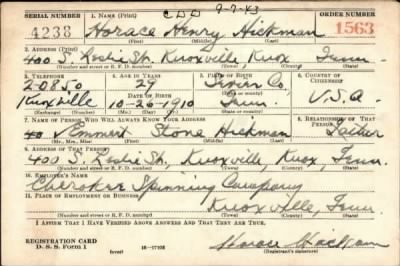 CDD 9-7-43
SERIAL NUMBER 1. NAME (Print) ORDER NUMBER
4238 Horace Henry Hickman 1563
(First) (Middle) (Last)
2. ADDRESS (Print)
400 S. Leslie St., Knoxville, Knox Tenn.
(Number and street or R. F. D. number) (Town) (County) (State)
3. TELEPHONE 4. AGE IN YEARS 5. PLACE OF BIRTH 6. COUNTRY OF CITIZENSHIP
2-0850 29 Sevier Co.
Knoxville DATE OF BIRTH
10-26-1910 Tenn. U.S.A.
(Exchange) (Number) (Mo.) (Day) (Yr.) (State or country)
7. NAME OF PERSON WHO WILL ALWAYS KNOW YOUR ADDRESS 8. RELATIONSHIP OF THAT PERSON
Emmert Stone Hickman Father
(Mr., Mrs., Miss) (First) (Middle) (Last)
9. ADDRESS OF THAT PERSON
400 S. Leslie St., Knoxville, Knox, Tenn.
(Number and street or R. F. D. number) (Town) (County) (State)
10. EMPLOYER'S NAME
Cherokee Spinning Company
11. PLACE OF EMPLOYMENT OR BUSINESS
Knoxville, Tenn.
(Number and street or R. F. D. number) (Town) (County) (State)
I AFFIRM THAT I HAVE VERIFIED ABOVE ANSWERS AND THAT THEY ARE TRUE.
REGISTRATION CARD
D. S. S. Form 1 (over) 16-17105 Horace Hickman